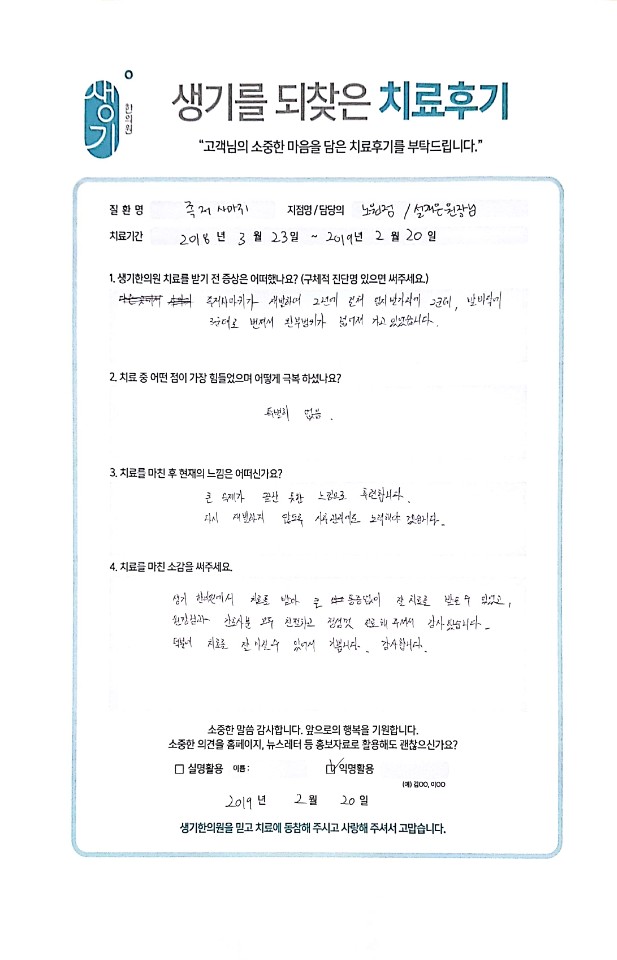 생기
한의원
생기를 되찾은 치료후기
“고객님의 소중한 마음을 담은 치료후기를 부탁드립니다.”
질 환 명 족저 사마귀 지점명 / 담당의 노원점 / 설재은 원장님
치료기간 2018 년 3 월 23일 ~ 2019년 2 월 20 일
1. 생기한의원 치료를 받기 전 증상은 어떠했나요? (구체적 진단명 있으면 써주세요.)
족저사마귀가 재발하여 2군데, 발바닥에
번져서 환부범위가 넓어져 가고 있었습니다.
2. 치료 중 어떤 점이 가장 힘들었으며 어떻게 극복 하셨나요?
특별히 없음.
3. 치료를 마친 후 현재의 느낌은 어떠신가요?
큰 숙제가 끝난 듯한 느낌으로 후련합니다.
다시 재발하지 않도록 노력해야 겠습니다.
4. 치료를 마친 소감을 써주세요.
생기 한의원에서 치료를 받아 큰 통증없이 잘 치료를 받을 수 있었고,
원장님과 간호사분 모두 친절하고 정성껏 치료해 주셔서 감사했습니다.
덕분에 치료를 잘 마칠수 있어서 기쁩니다. 감사합니다.
소중한 말씀 감사합니다. 앞으로의 행복을 기원합니다.
소중한 의견을 홈페이지, 뉴스레터 등 홍보자료로 활용해도 괜찮으신가요?
실명활용 이름 : 익명활용
(예) 김OO, 이OO
2019 년 2 월 20 일
생기한의원을 믿고 치료에 동참해 주시고 사랑해 주셔서 고맙습니다.